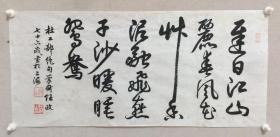 遲日江山
麗春風花
艸香
泥融飛燕
子沙暖睡
鴛鴦
杜工部絕句
七十六歲書於上海